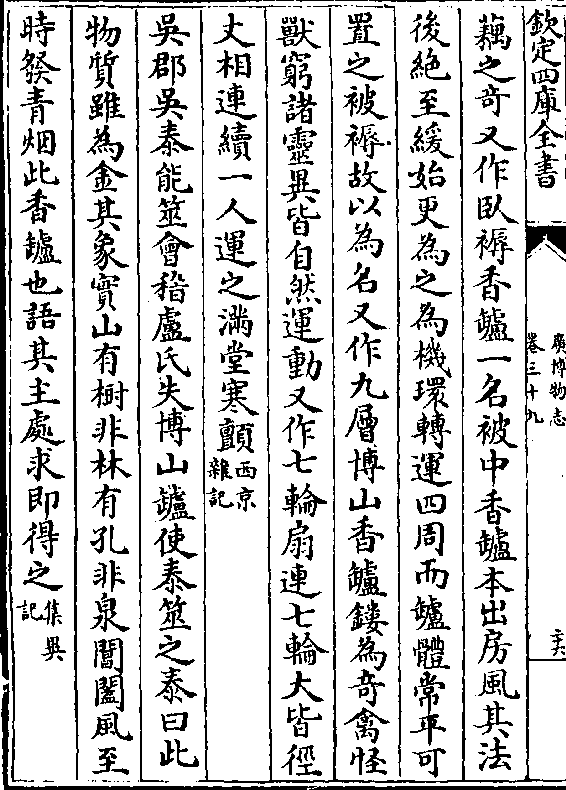 欽定四庫全書
廣博物志
卷三十九
藕之奇又作臥褥香鑪一名被中香鑪本出房風其法
後絶至緩始更為之為機環轉運四周而鑪體常平可
置之被褥故以為名又作九層博山香鑪鏤為奇禽怪
獸窮諸靈異皆自然運動又作七輪扇連七輪大皆徑
丈相連續一人運之滿堂寒顫西京雜記
吳郡吳泰能筮會稽盧氏失博山鑪使泰筮之泰曰此
物質雖為金其象實山有樹非林有孔非泉閶闔風至
時發青烟此香鑪也語其主處求即得之集異記